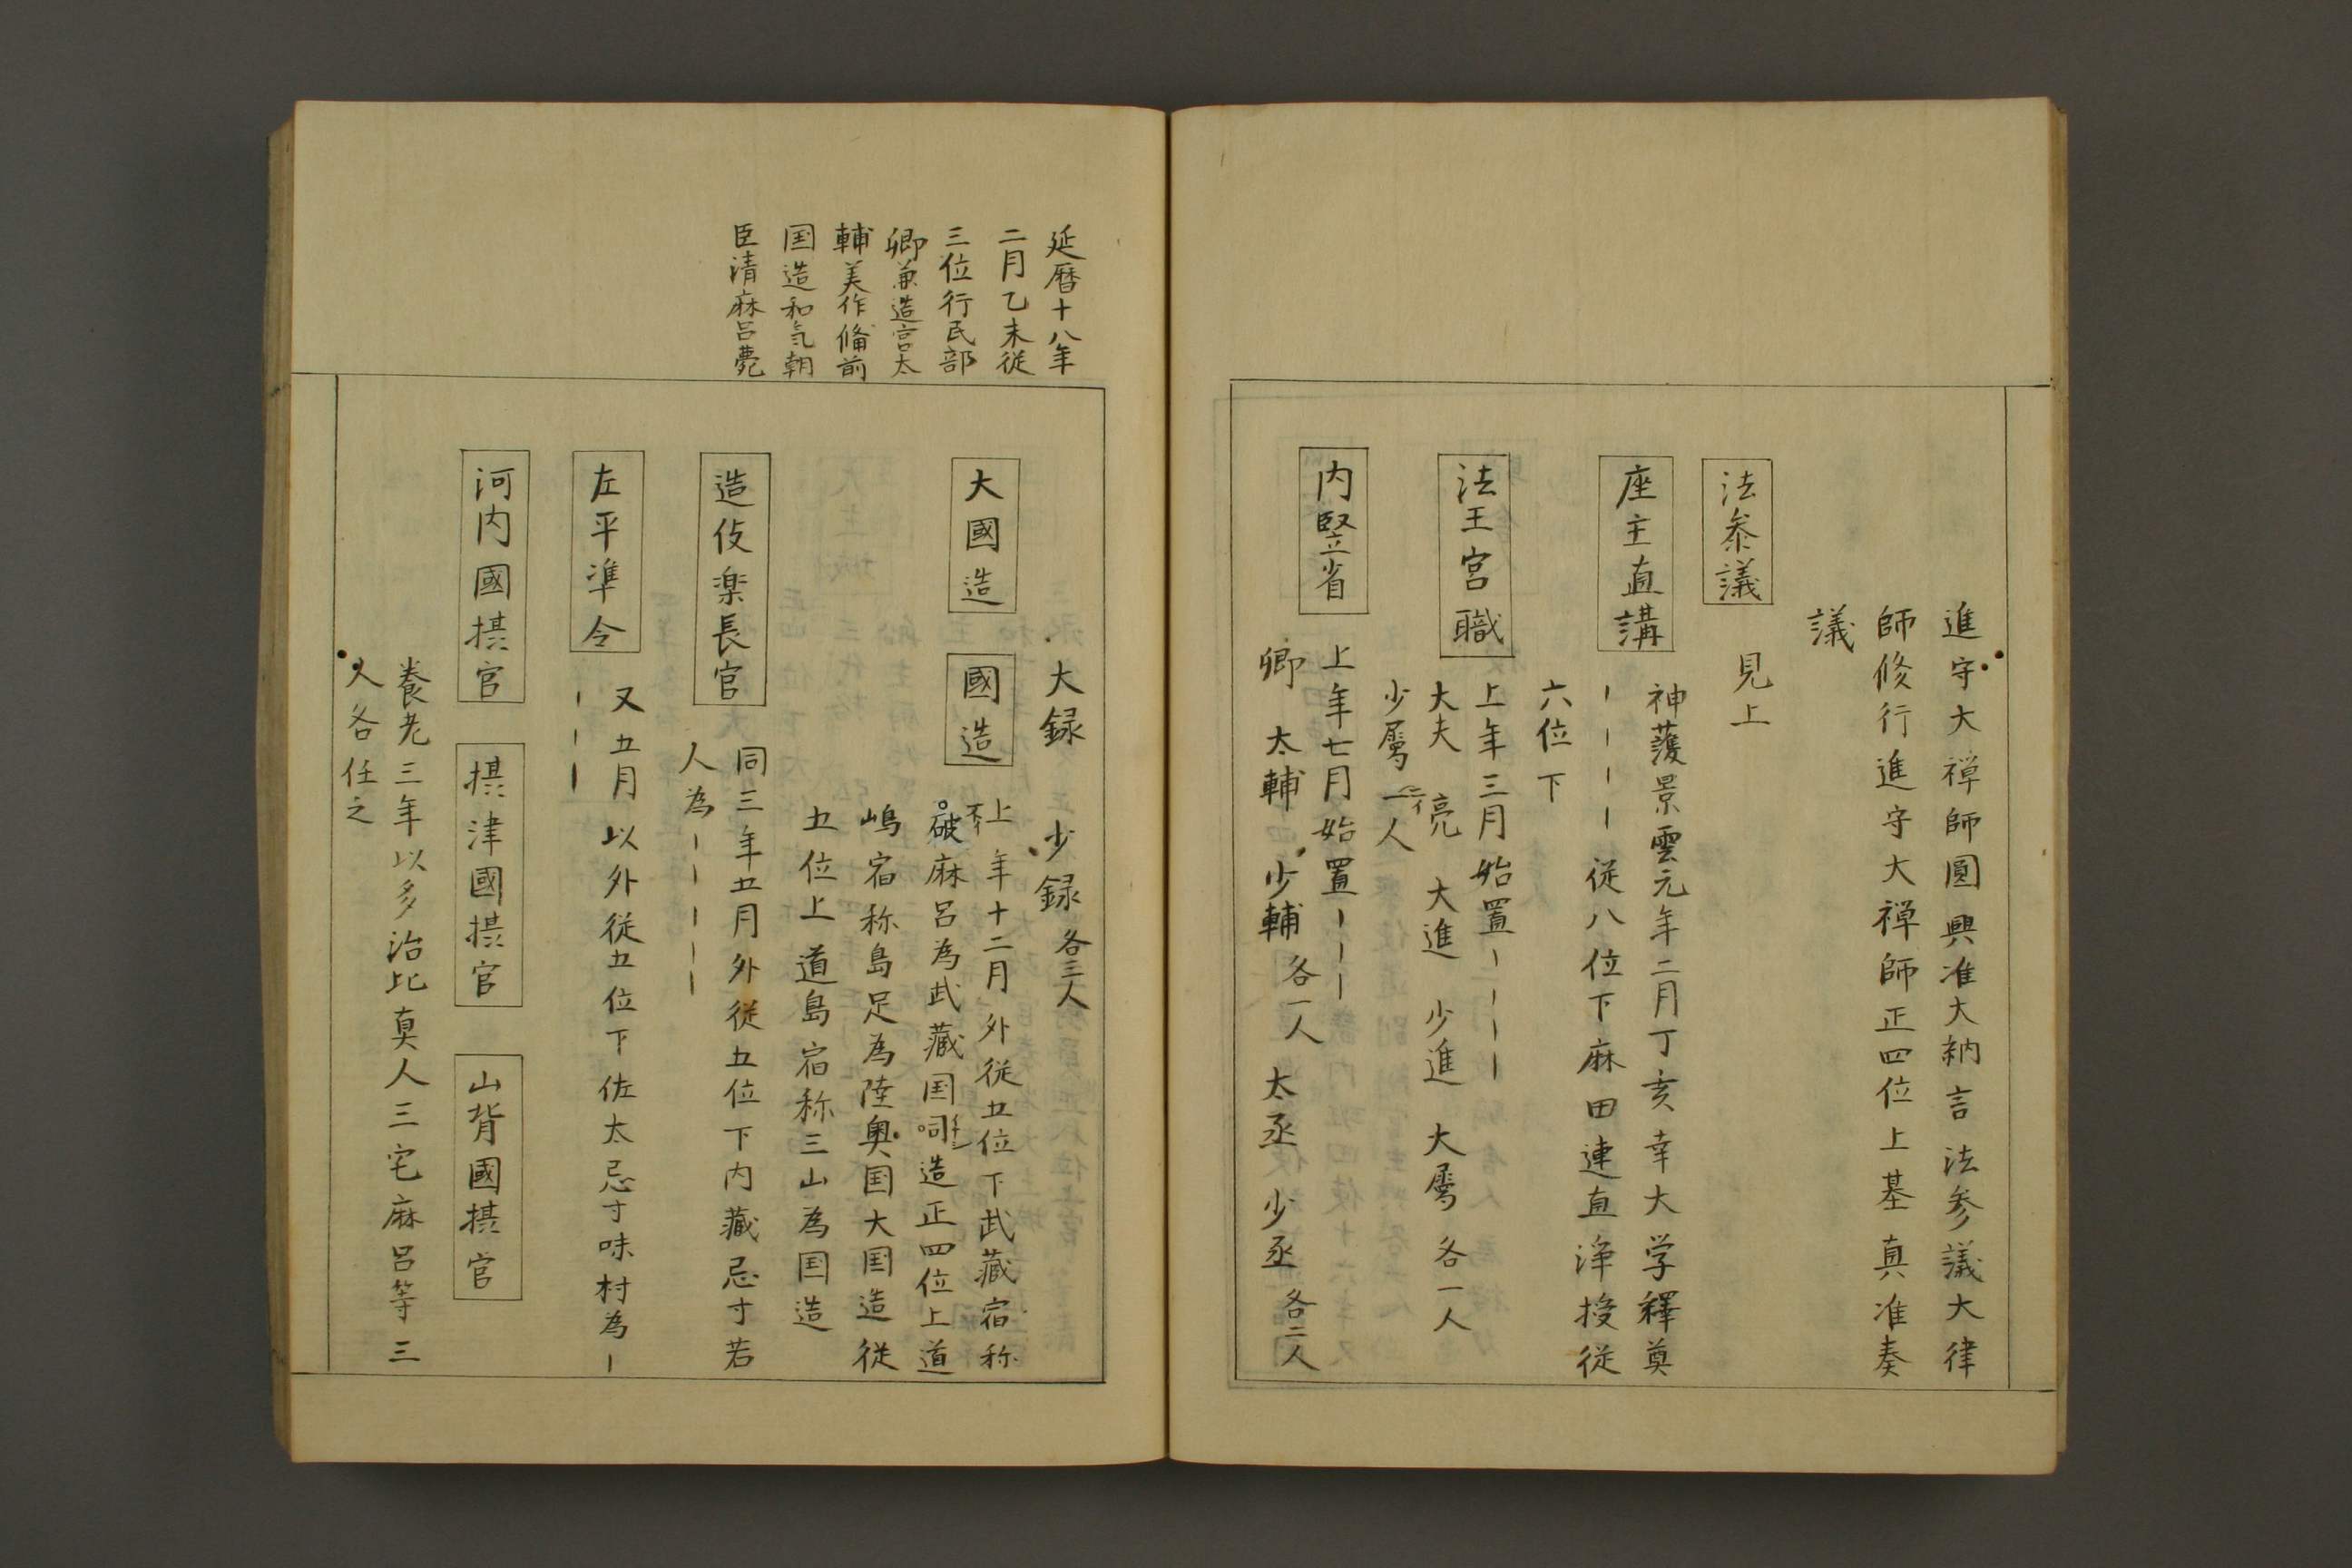 進守大禅師圓興准大納言法参議大律
師修行進守大禅師正四位上基真准奏
議
法叅議 見上
座主直講 神護景雲元年二月丁亥幸大学釋奠
一一一一従八位下麻田連直浄授従
六位下
法王宮職 上年三月始置一一一一
大夫 亮 大進 少進 大属 各一人
少属 二人
内竪省 上年七月始置一一一
卿 大輔 少輔 各一人 大丞 少丞 各二人
大録 少録 各三人
大國造 國造 上年十二月外従五位下武藏宿祢
不破麻呂為武藏国造正四位上道
嶋宿祢島足為陸奥国大国造従
五位上道島宿祢三山為国造
造伎楽長官 同三年五月外従五位下内藏忌寸若
人為一一一一一
左平準令 又五月以外従五位下佐太忌寸味村為一
一一一
河内國摂官 摂津國摂官 山背國摂官
養老三年以多治比真人三宅麻呂等三
人各任之
延暦十八年
二月乙未従
三位行民部
卿兼造宮太
輔美作備前
国造和气朝
臣清麻呂薨